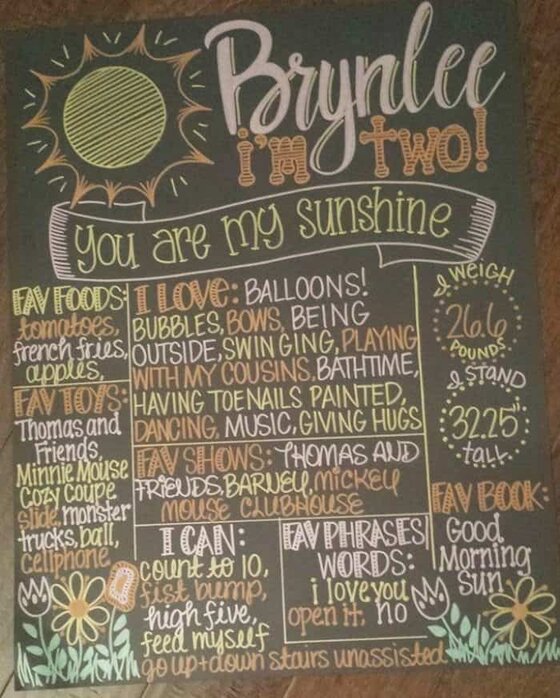 Brynlee
i'm two!
you are my sunshine
FAV FOODS:
tomatoes,
french fries,
apples,
FAV TOYS:
Thomas and
Friends
Minnie Mouse
Cozy Coupe
slide, monster
trucks, ball,
cellphone
I LOVE: BALLOONS!
BUBBLES, BOWS, BEING
OUTSIDE, SWINGING, PLAYING
WITH MY COUSINS, BATHTIME,
HAVING TOENAILS PAINTED,
DANCING, MUSIC, GIVING HUGS
FAV SHOWS: THOMAS AND
FRIENDS, BARNEY, MICKEY
MOUSE CLUBHOUSE
I CAN:
count to 10,
fist bump,
high five,
feed myself
go up + down stairs unassisted
FAV PHRASES
WORDS:
i love you
open it, no
I WEIGH
26.6
POUNDS
I STAND
32.25"
TALL
FAV BOOK:
Good
Morning
Sun